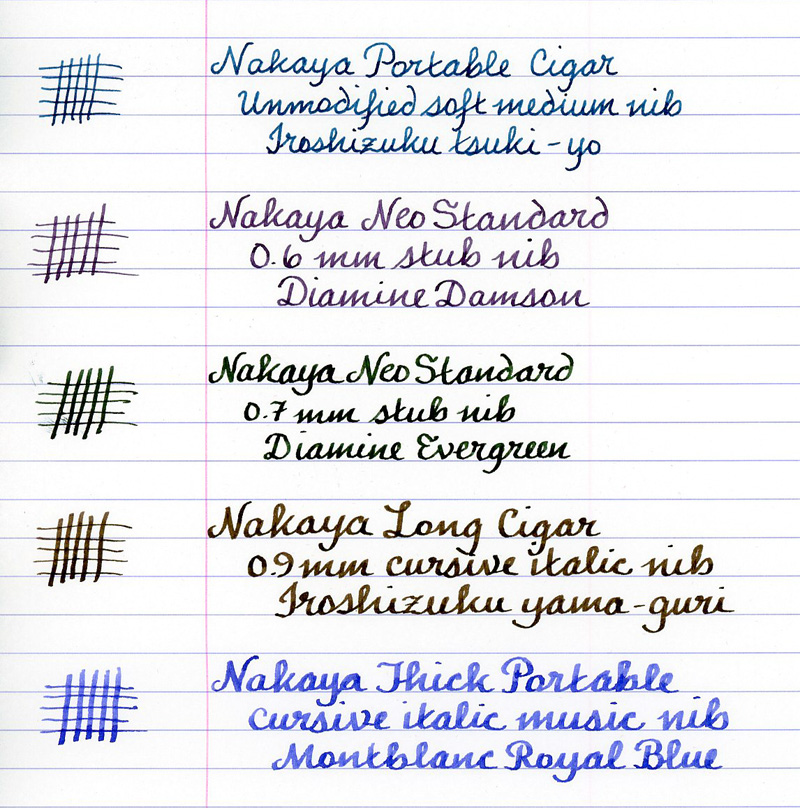 Nakaya Portable Cigar
Unmodified soft medium nib
Iroshizuku tsuki-yo
Nakaya Neo Standard
0.6 mm stub nib
Diamine Damson
Nakaya Neo Standard
0.7 mm stub nib
Diamine Evergreen
Nakaya Long Cigar
0.9 mm cursive italic nib
Iroshizuku yama-guri
Nakaya Thick Portable
cursive italic music nib
Montblanc Royal Blue